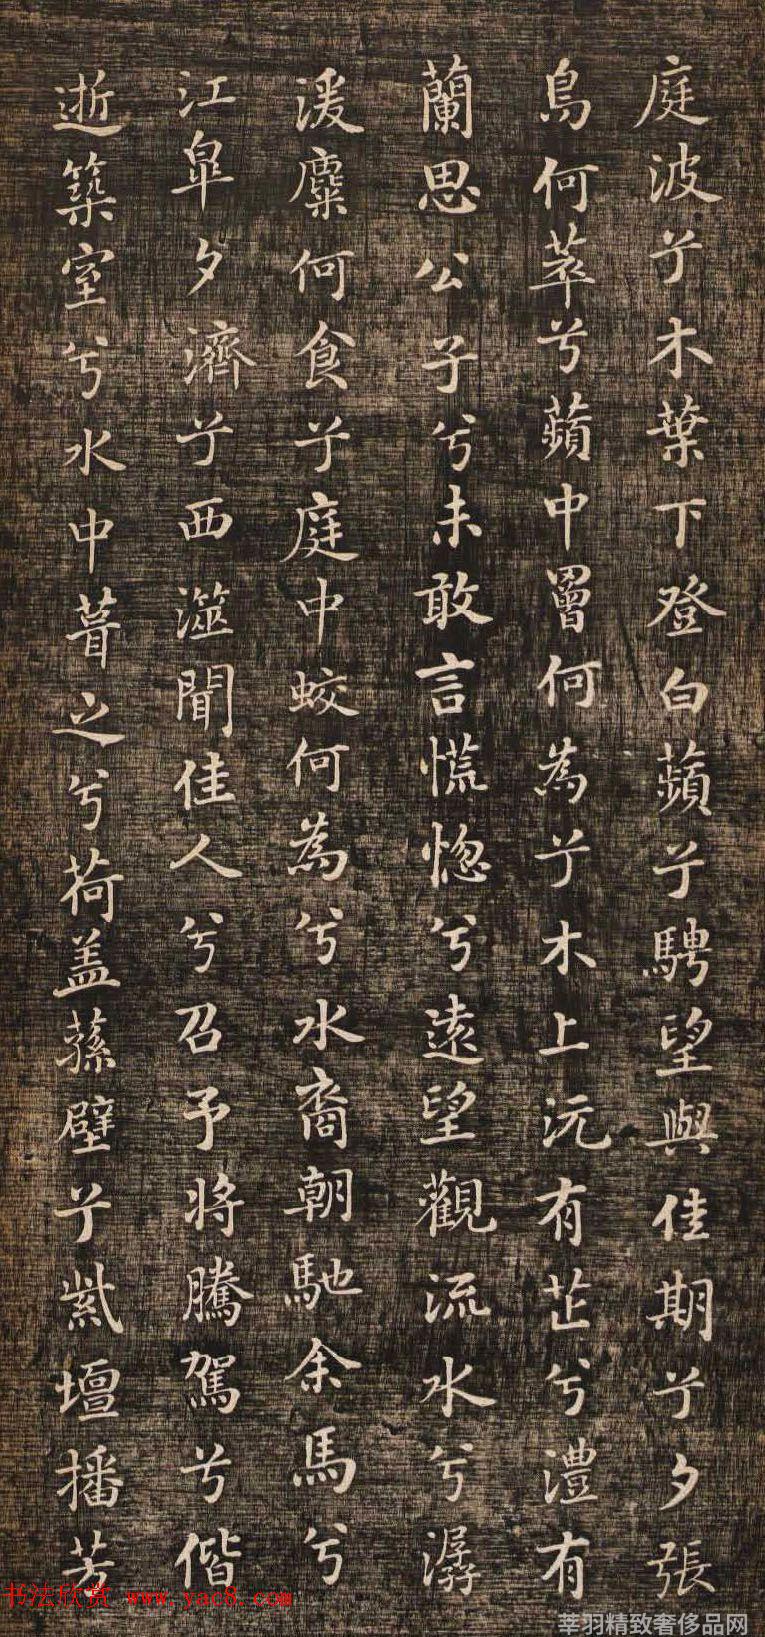 庭波兮木葉下登白蘋兮騁望與佳期兮夕張
鳥何萃兮蘋中罾何為兮木上沅有芷兮澧有
蘭思公子兮未敢言慌惚兮遠望觀流水兮潺
湲麋何食兮庭中蛟何為兮水裔朝馳余馬兮
江皐夕濟兮西澨聞佳人兮召予將騰駕兮偕
逝築室兮水中葺之兮荷盖蓀壁兮紫壇播芳
书法欣赏 www.yac8.com
莘羽精致奢侈品网